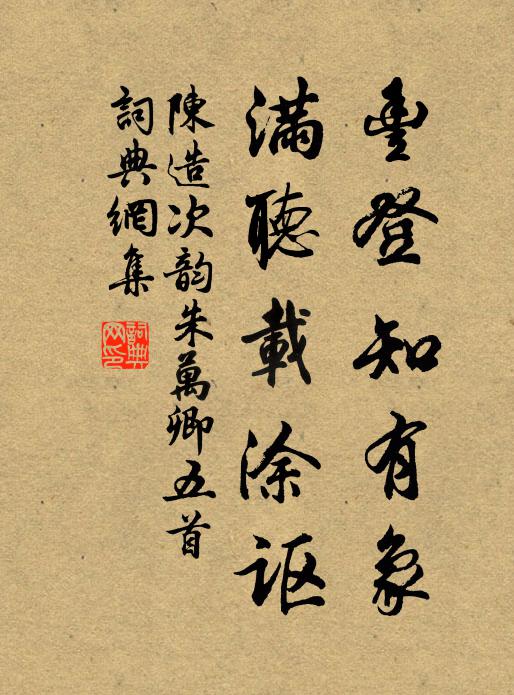 豊登知有象
滿聽載涂讴
陳造次韵朱萬卿五首
詞典網集
詞典網印